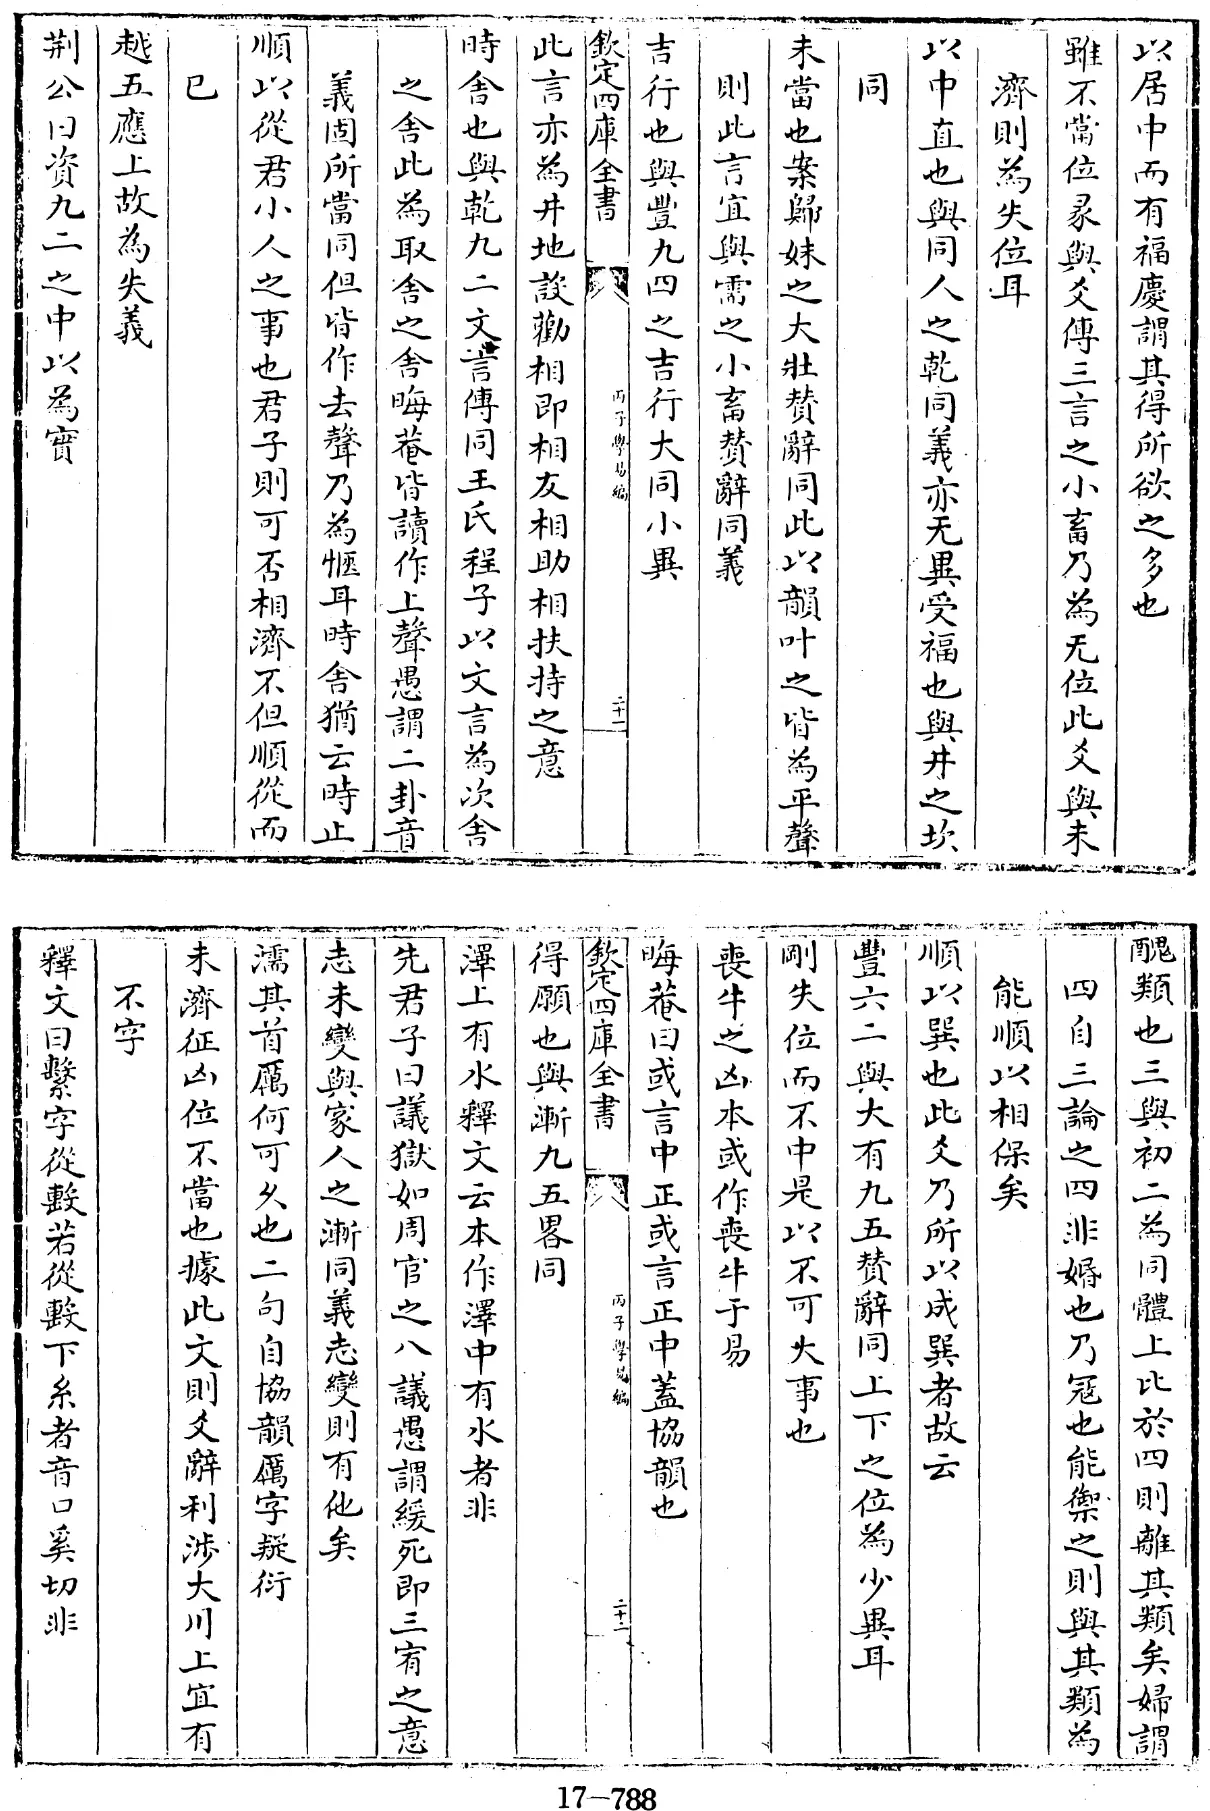 以居中而有福慶謂其得所欲之多也
雖不當位彖與爻傳三言之小畜乃為无位此爻與未
濟則為失位耳
以中直也與同人之乾同義亦无異受福也與井之坎
同
未當也案歸妹之大壯賛辭同此以韻叶之皆為平聲
則此言宜與需之小畜賛辭同義
吉行也與豐九四之吉行大同小異
欽定四庫全書
丙子學易編
二十一
此言亦為井地設勸相即相友相助相扶持之意
時舍也與乾九二文言傳同王氏程子以文言為次舍
之舍此為取舍之舍晦菴皆讀作上聲愚謂二卦音
義固所當同但皆作去聲乃為愜耳時舍猶云時止
順以從君小人之事也君子則可否相濟不但順從而
已
越五應上故為失義
荆公曰資九二之中以為實
醜類也三與初二為同體上比於四則離其類矣婦謂
四自三論之四非婚也乃冦也能禦之則與其類為
能順以相保矣
順以巽也此爻乃所以成巽者故云
豐六二與大有九五賛辭同上下之位為少異耳
剛失位而不中是以不可大事也
喪牛之凶本或作喪牛于易
晦菴曰或言中正或言正中蓋協韻也
欽定四庫全書
丙子學易編
二十二
得願也與漸九五畧同
澤上有水釋文云本作澤中有水者非
先君子曰議獄如周官之八議愚謂緩死即三宥之意
志未變與家人之漸同義志變則有他矣
濡其首厲何可久也二句自協韻厲字疑衍
未濟征凶位不當也據此文則爻辭利涉大川上宜有
不字
釋文曰繫字從毄若從毄下糸者音口奚切非
17-788